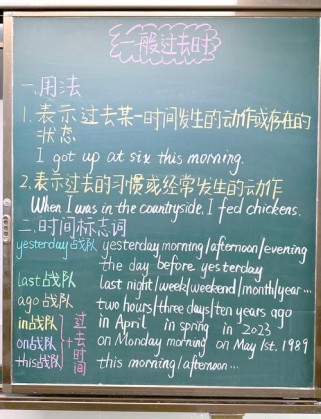 一般过去时
一.用法
1.表示过去某一时间发生的动作或存在的
状态
I got up at six this morning.
2.表示过去的习惯或经常发生的动作
When I was in the countryside, I fed chickens.
二.时间标志词
yesterday战队 yesterday morning/afternoon/evening
the day before yesterday
last战队 last night/week/weekend/month/year…
ago战队 two hours/three days/ten years ago
in战队 in April in spring in 2023
on战队 + 过去时间 on Monday morning on May 1st, 1989
this战队 this morning/afternoon…